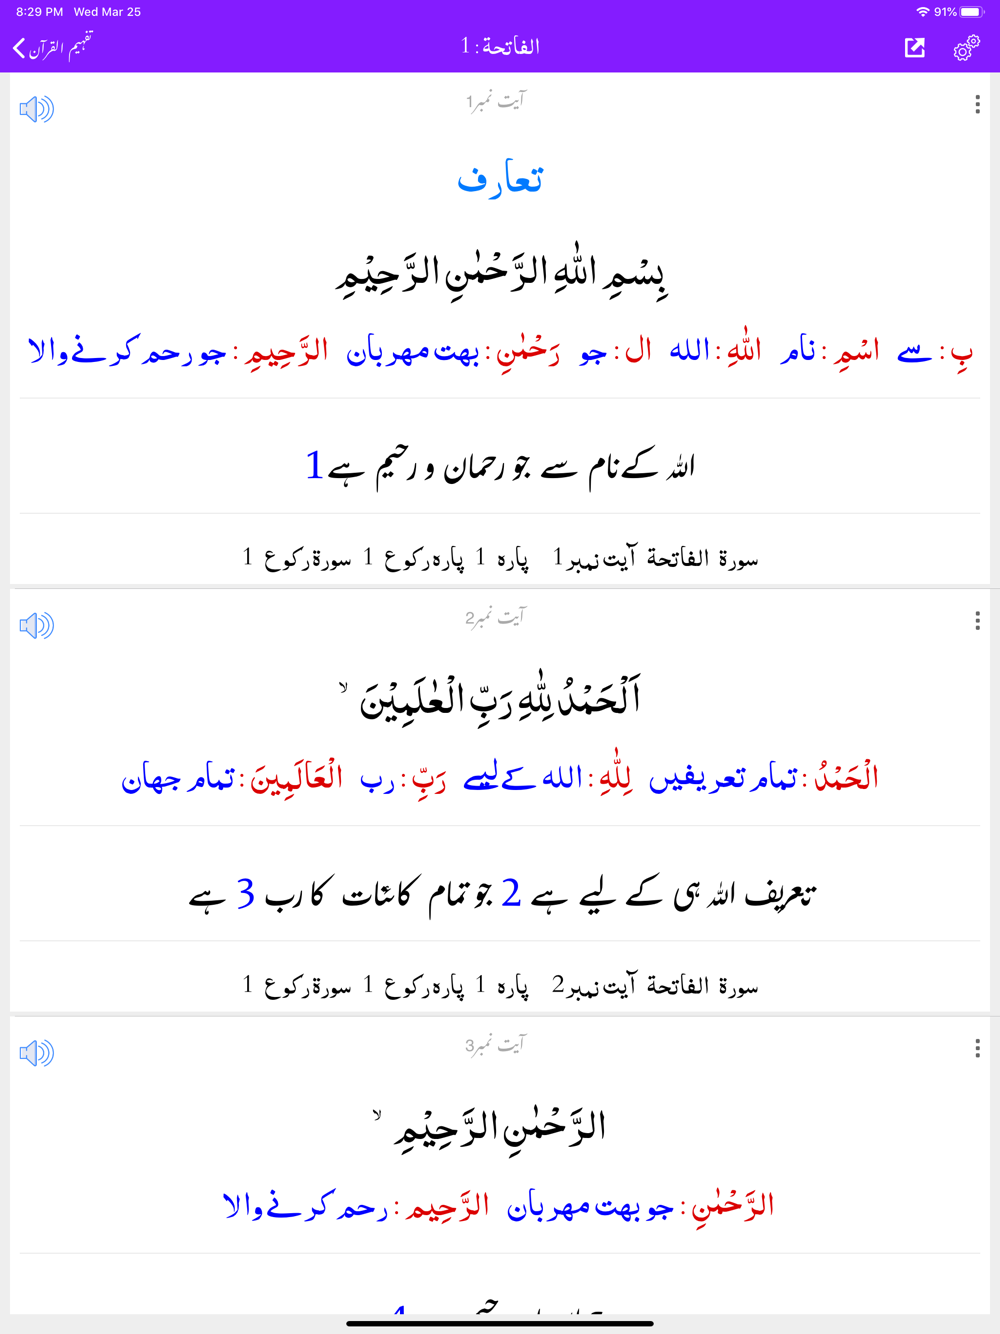 8:29 PM Wed Mar 25 91%
تفہیم القرآن الفاتحة : 1
آیت نمبر1
تعارف
بِسْمِ اللّٰهِ الرَّحْمٰنِ الرَّحِيْمِ
بِ : سے اسْمِ : نام اللّٰهِ : الله ال : جو رَحْمٰنِ : بهت مهربان الرَّحِيمِ : جو رحم كرنے والا
اللہ کے نام سے جو رحمان و رحیم ہے1
سورة الفاتحة آیت نمبر 1 پارہ 1 پارہ رکوع 1 سورة رکوع 1
آیت نمبر2
اَلْحَمْدُ لِلّٰهِ رَبِّ الْعٰلَمِيْنَ ۙ
الْحَمْدُ : تمام تعريفيں لِلّٰهِ : الله كے ليے رَبِّ : رب الْعَالَمِينَ : تمام جهان
تعریف اللہ ہی کے لیے ہے 2 جو تمام کائنات کا رب 3 ہے
سورة الفاتحة آیت نمبر 2 پارہ 1 پارہ رکوع 1 سورة رکوع 1
آیت نمبر3
الرَّحْمٰنِ الرَّحِيْمِ ۙ
الرَّحْمٰنِ : جو بهت مهربان الرَّحِيم : رحم كرنے والا